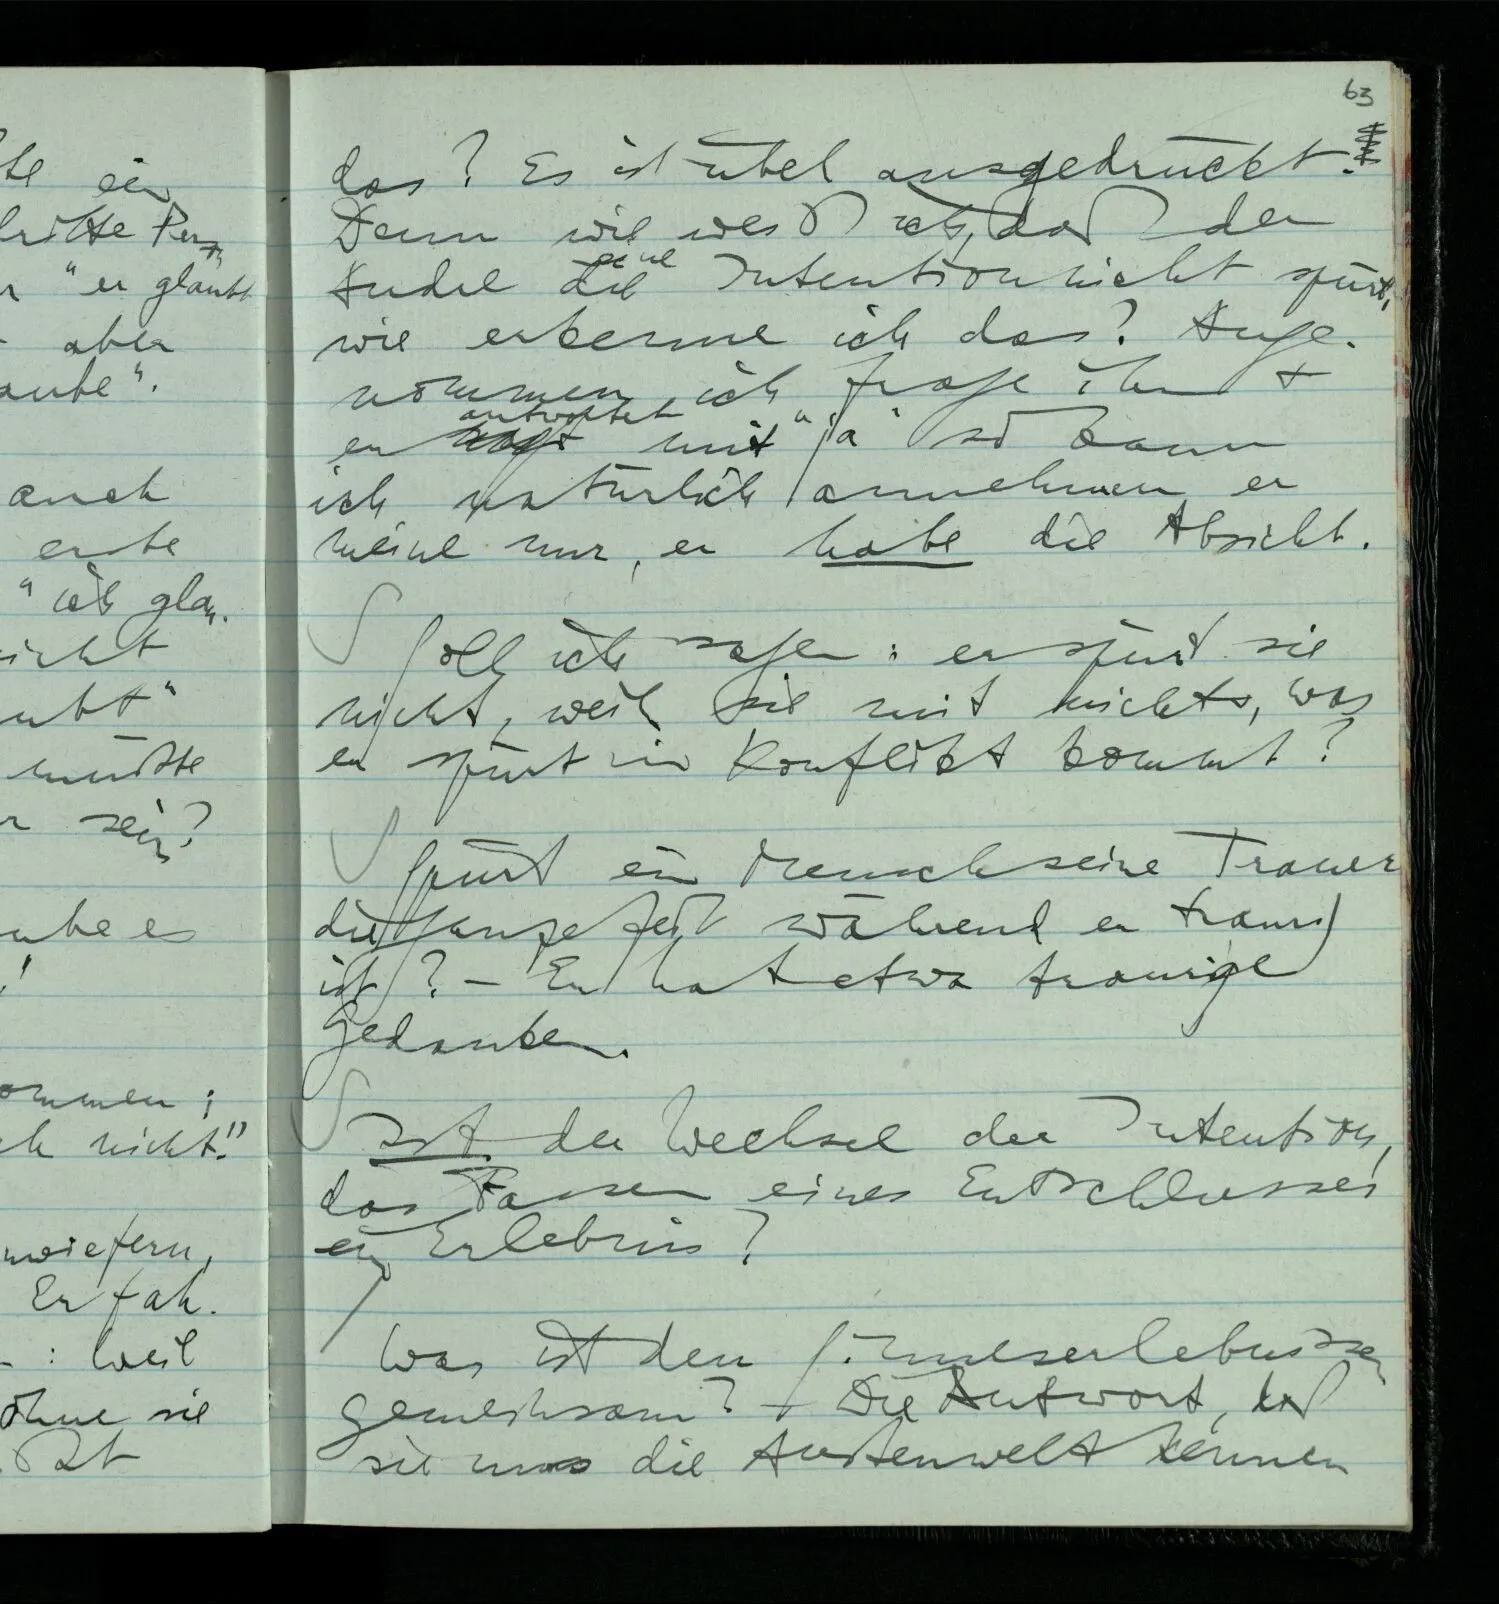 te ein
dritte Pers
" er glaubt
aber
aube".
auch
erste
" ich glau.
nicht
ubt"
müßte
sein?
aube es
!
ommen ;
ch nicht."
inwiefern,
Erfah.
- : weil
ohne sie
63
das? Es ist übel ausgedrückt.
Denn wie weiß ich, daß der
Andre die seine Intention nicht spürt,
wie erkenne ich das? Ange-
nommen, ich frage ihn +
antwortet
er sagt mit "ja" so kann
ich natürlich annehmen er
meine nur, er habe die Absicht.
Soll ich sagen: er spürt sie
nicht, weil sie mit nichts, was
er spürt in Konflikt kommt?
Spürt ein Mensch seine Trauer
die ganze Zeit während er traurig
ist? – Er hat etwa traurige
Gedanken.
Ist der Wechsel der Intention,
das Fassen eines Entschlusses
ein Erlebnis?
Was ist den Sinneserlebnissen
gemeinsam? – Die Antwort, daß
sie uns die Außenwelt kennen